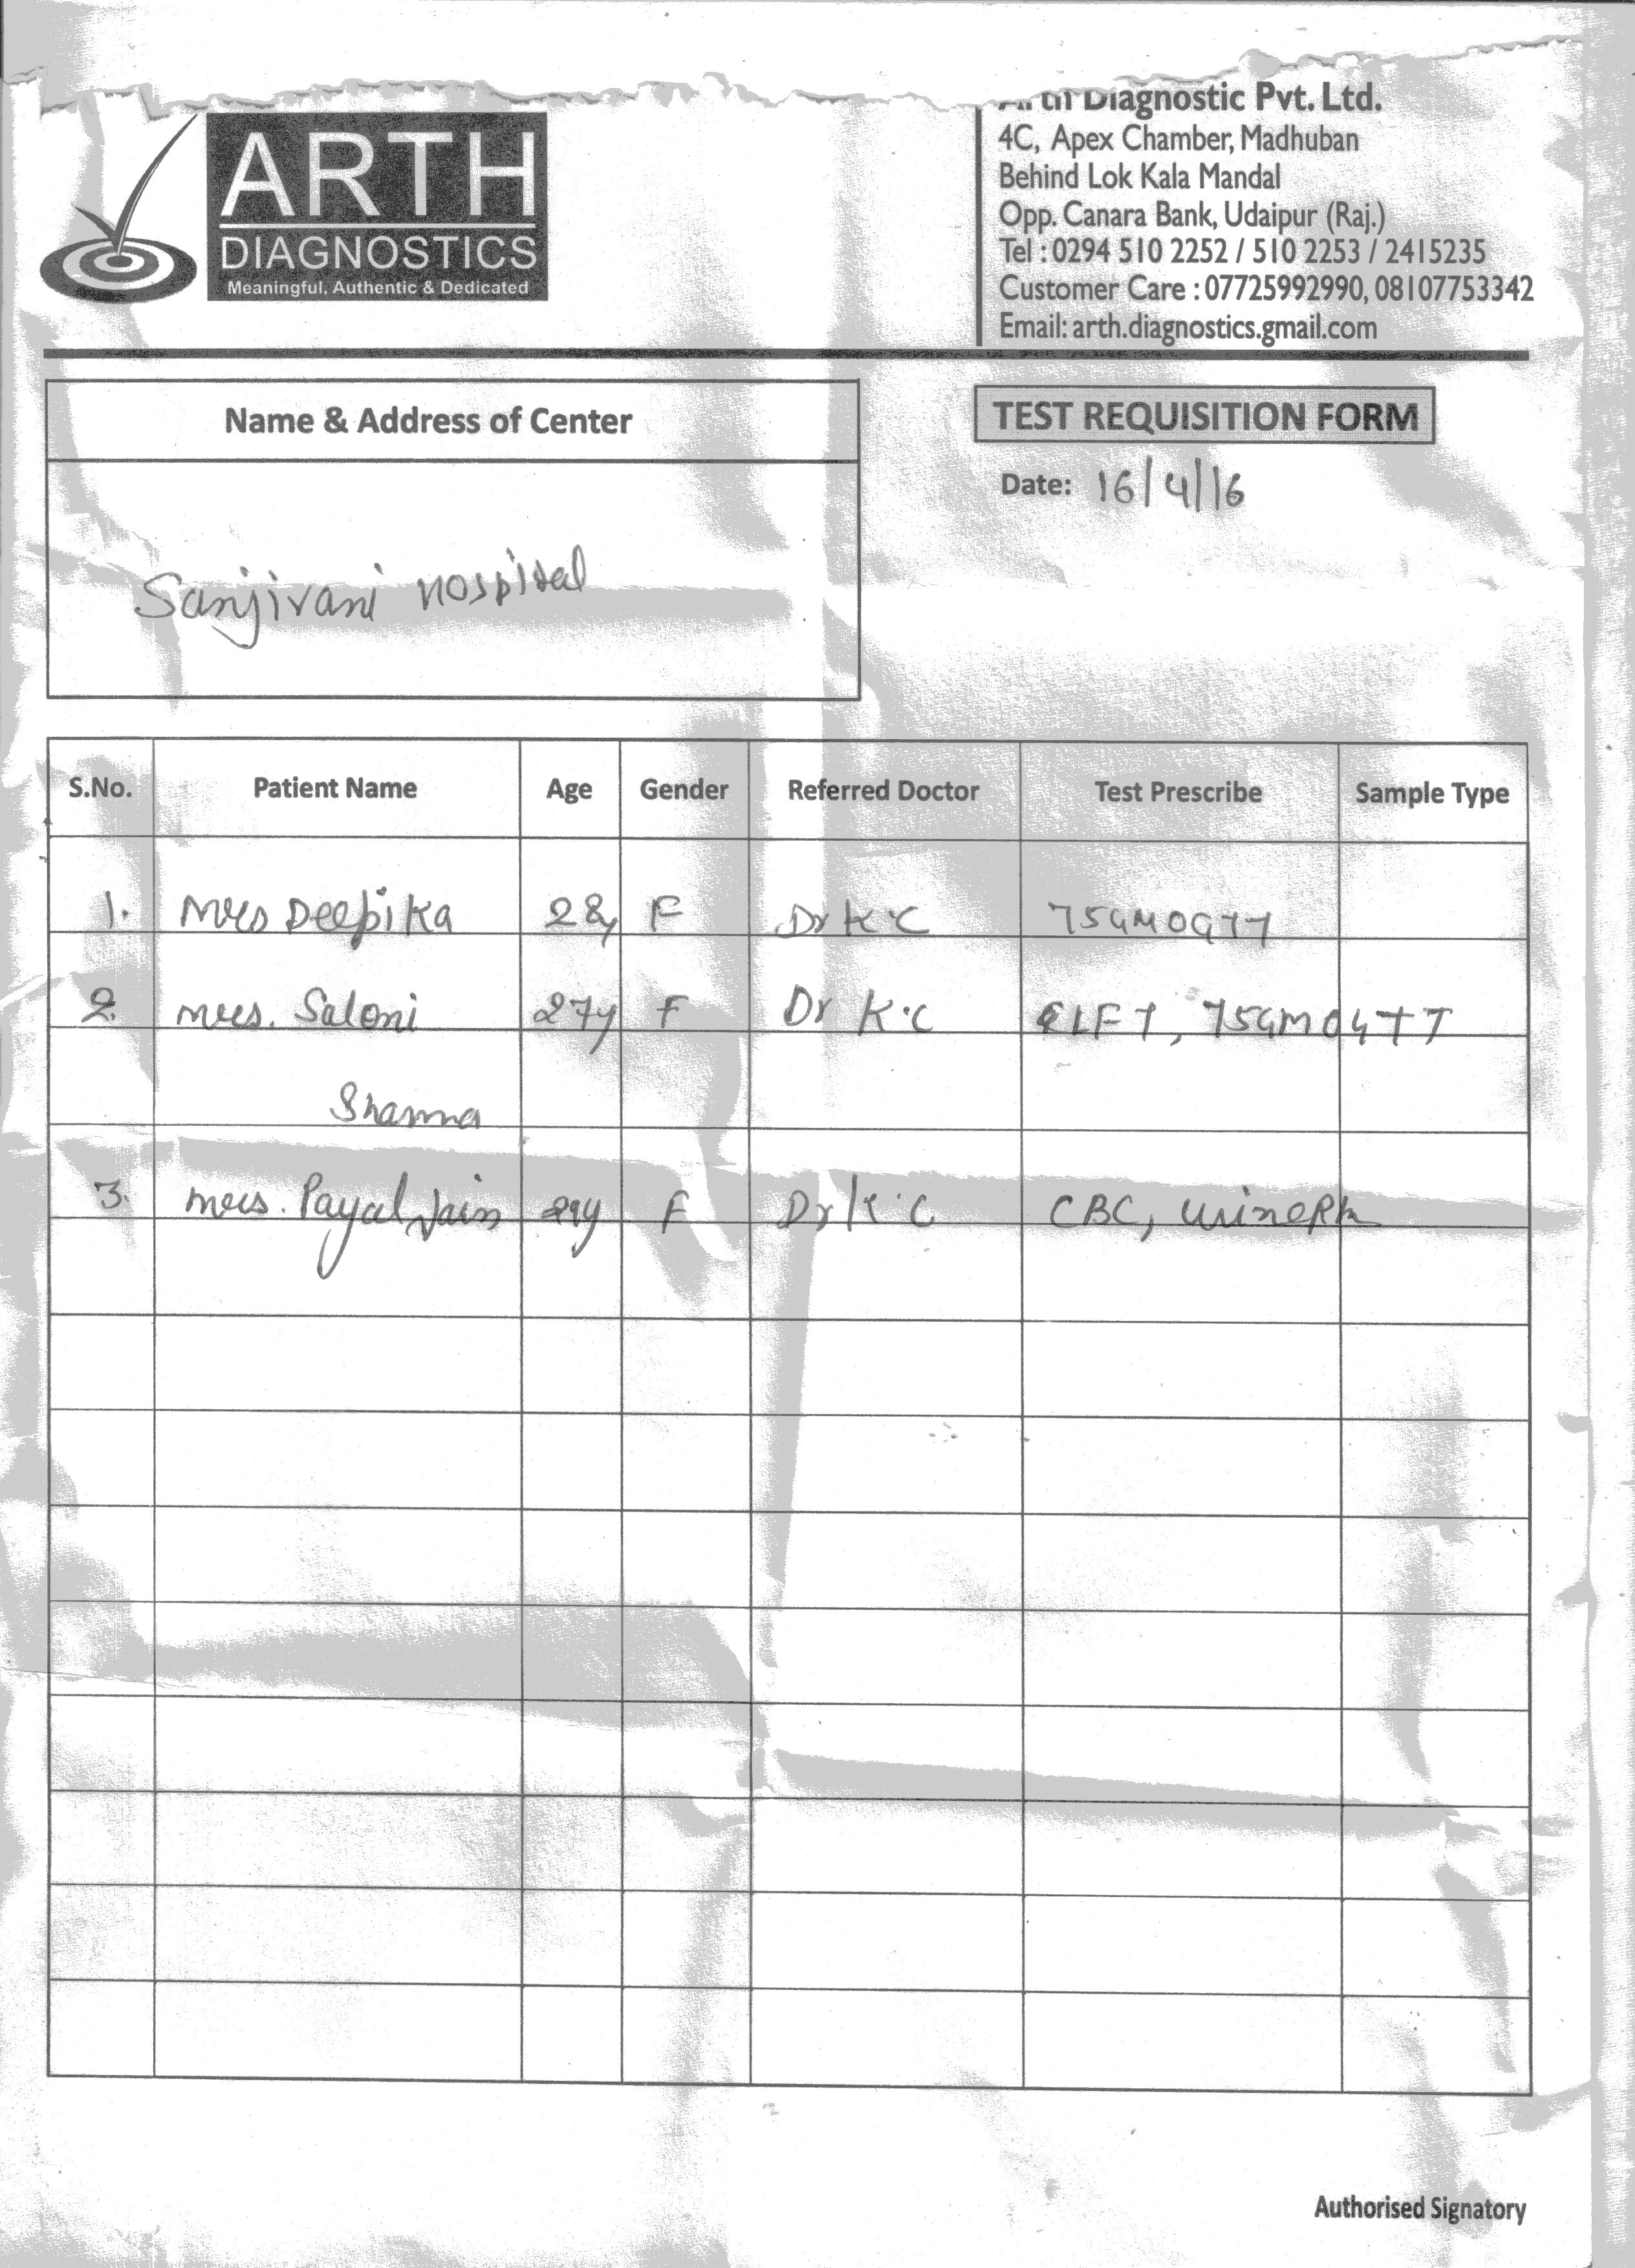 ARTH
DIAGNOSTICS
Meaningful, Authentic & Dedicated
Arth Diagnostic Pvt. Ltd.
4C, Apex Chamber, Madhuban
Behind Lok Kala Mandal
Opp. Canara Bank, Udaipur (Raj.)
Tel : 0294 510 2252 / 510 2253 / 2415235
Customer Care : 07725992990, 08107753342
Email: arth.diagnostics.gmail.com
Name & Address of Center
TEST REQUISITION FORM
Date: 16/4/16
Sanjivani Hospital
S.No. Patient Name Age Gender Referred Doctor Test Prescribe Sample Type
1. Mrs Deepika 28y F Dr K C 75GMOGTT
2. Mrs. Saloni 27y F Dr K.C LFT, 75GMOGTT
Sharma
3. Mrs. Payal Jain 29y F Dr K.C CBC, Urine
Authorised Signatory